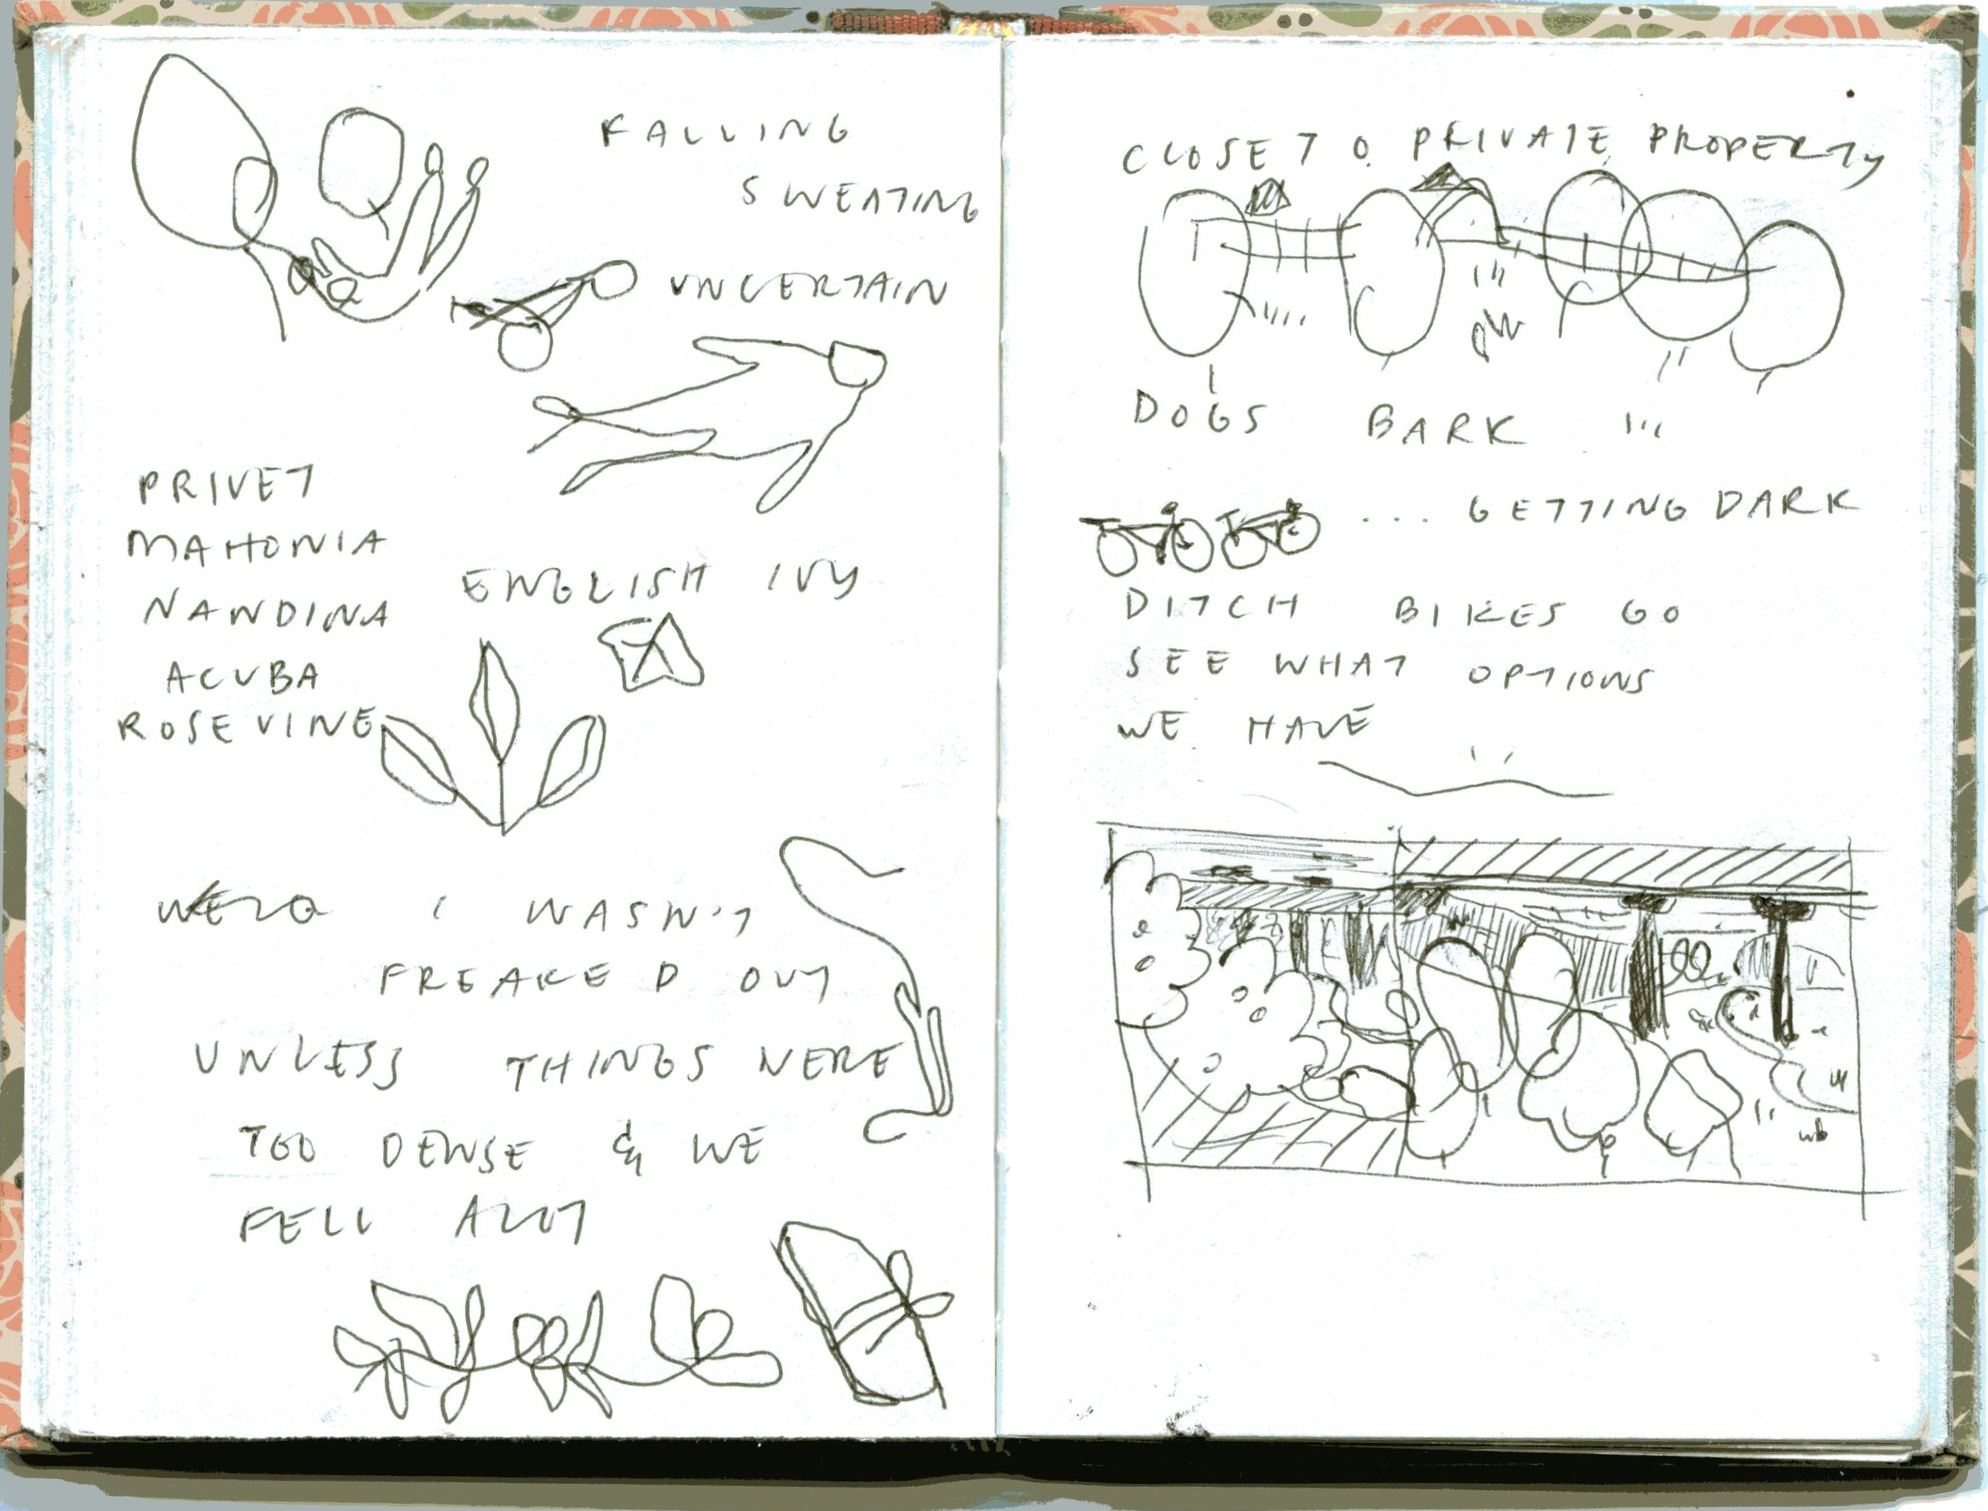 FALLING
SWEATING
UNCERTAIN
PRIVET
MAHONIA
NANDINA
ACUBA
ROSE VINE
ENGLISH IVY
I WASN'T
FREAKED OUT
UNLESS THINGS WERE
TOO DENSE & WE
FELL ALOT
CLOSE TO PRIVATE PROPERTY
DOGS BARK
... GETTING DARK
DITCH BIKES GO
SEE WHAT OPTIONS
WE HAVE